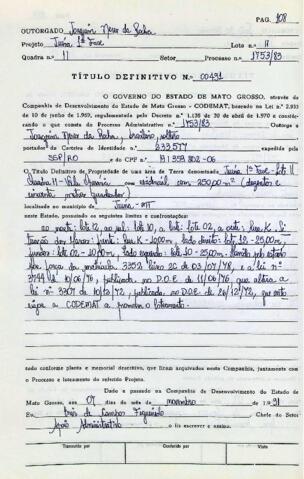 PAG. 108
OUTORGADO Joaquim Neres da Rocha
Projeto Juína 1ª Fase Lote n.º 11
Quadra n.º 11 Setor Processo n.º 1753/83
TÍTULO DEFINITIVO N.º 00431
O GOVERNO DO ESTADO DE MATO GROSSO, através da
Companhia de Desenvolvimento do Estado de Mato Grosso - CODEMAT, baseado na Lei n.º 2.911
de 10 de junho de 1.969, regulamentada pelo Decreto n.º 1.138 de 20 de abril de 1.970 e considerando
o que consta do Processo Administrativo n.º 1753/83 Outorga a
Joaquim Neres da Rocha, brasileiro, solteiro
portador da Carteira de Identidade n.º 233577 expedida pela
SSP/RO e do CPF n.º
O Título Definitivo de Propriedade de uma área de Terra denominada Juína 1ª Fase - Lote 11
Quadra 11 com residencial, com 250,00 m² (duzentos e
cinquenta metros quadrados)
localizado no município de Juína - MT
neste Estado, possuindo os seguintes limites e confrontações:
ao norte: lote 12, ao sul: lote 10, a leste: lote 02, a oeste: rua K.
frente: rua K - 10,00m, lado direito: lote 12 - 25,00m,
fundos: lote 02 - 10,00m, lado esquerdo: lote 10 - 25,00m.
por força da matrícula 3352 livro 2C de 03/07/78, e a lei nº
3744 de 10/06/76, publicada no D.O.E de 11/06/76 que altera a
lei nº 3307 de 18/12/72, publicada no D.O.E de 26/12/72, que
a CODEMAT a promover o loteamento.
tudo conforme planta e memorial descritivo, que ficam arquivados nesta Companhia, juntamente com
o Processo e loteamento do referido Projeto.
Dado e passado na Companhia de Desenvolvimento do Estado de
Mato Grosso, aos 07 dias do mês de novembro de 1.991
Eu, Inês de Campos Figueiredo Chefe do Setor
Apoio Administrativo o fiz escrever e assino.
Transcrito por Conferido por Visto